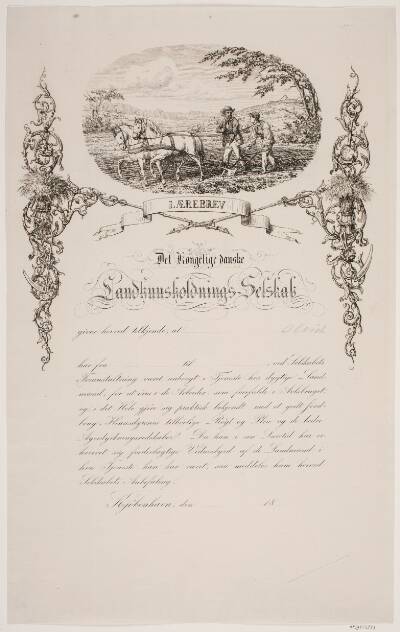 LÆREBREV
Det Kongelige danske
Landhuusholdnings-Selskab
givne herved tilkjende, at
har fra til ved Selskabets
Foranstaltning været anbragt i Tjeneste hos dygtige Land-
mænd, for at øves i de Arbeider, som forefalde i Agerbruget,
og i det Hele give sig praktisk bekjendt med et godt
Huusdyrenes Røgt og Pleie og de bedre
Agerdyrkningsredskaber. Da han i sin Læretid har er-
hvervet sig fordeelagtige Vidnesbyrd af de Landmænd i
hvis Tjeneste han har været, saa meddeles ham herved
Selskabets Anbefaling.
Kjøbenhavn, den 18